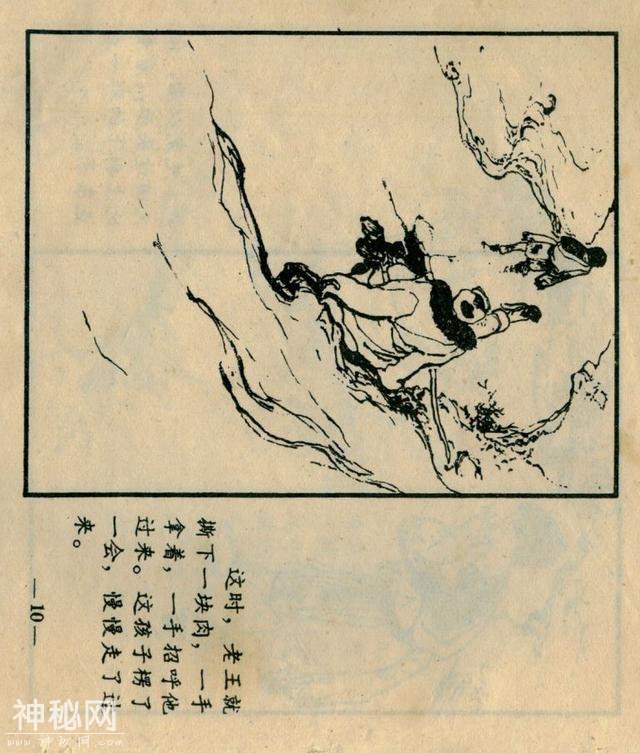 这时，老王就
撕下一块肉，一手
拿着，一手招呼他
过来。这孩子楞了
一会，慢慢走了过
来。
—10—
神秘网